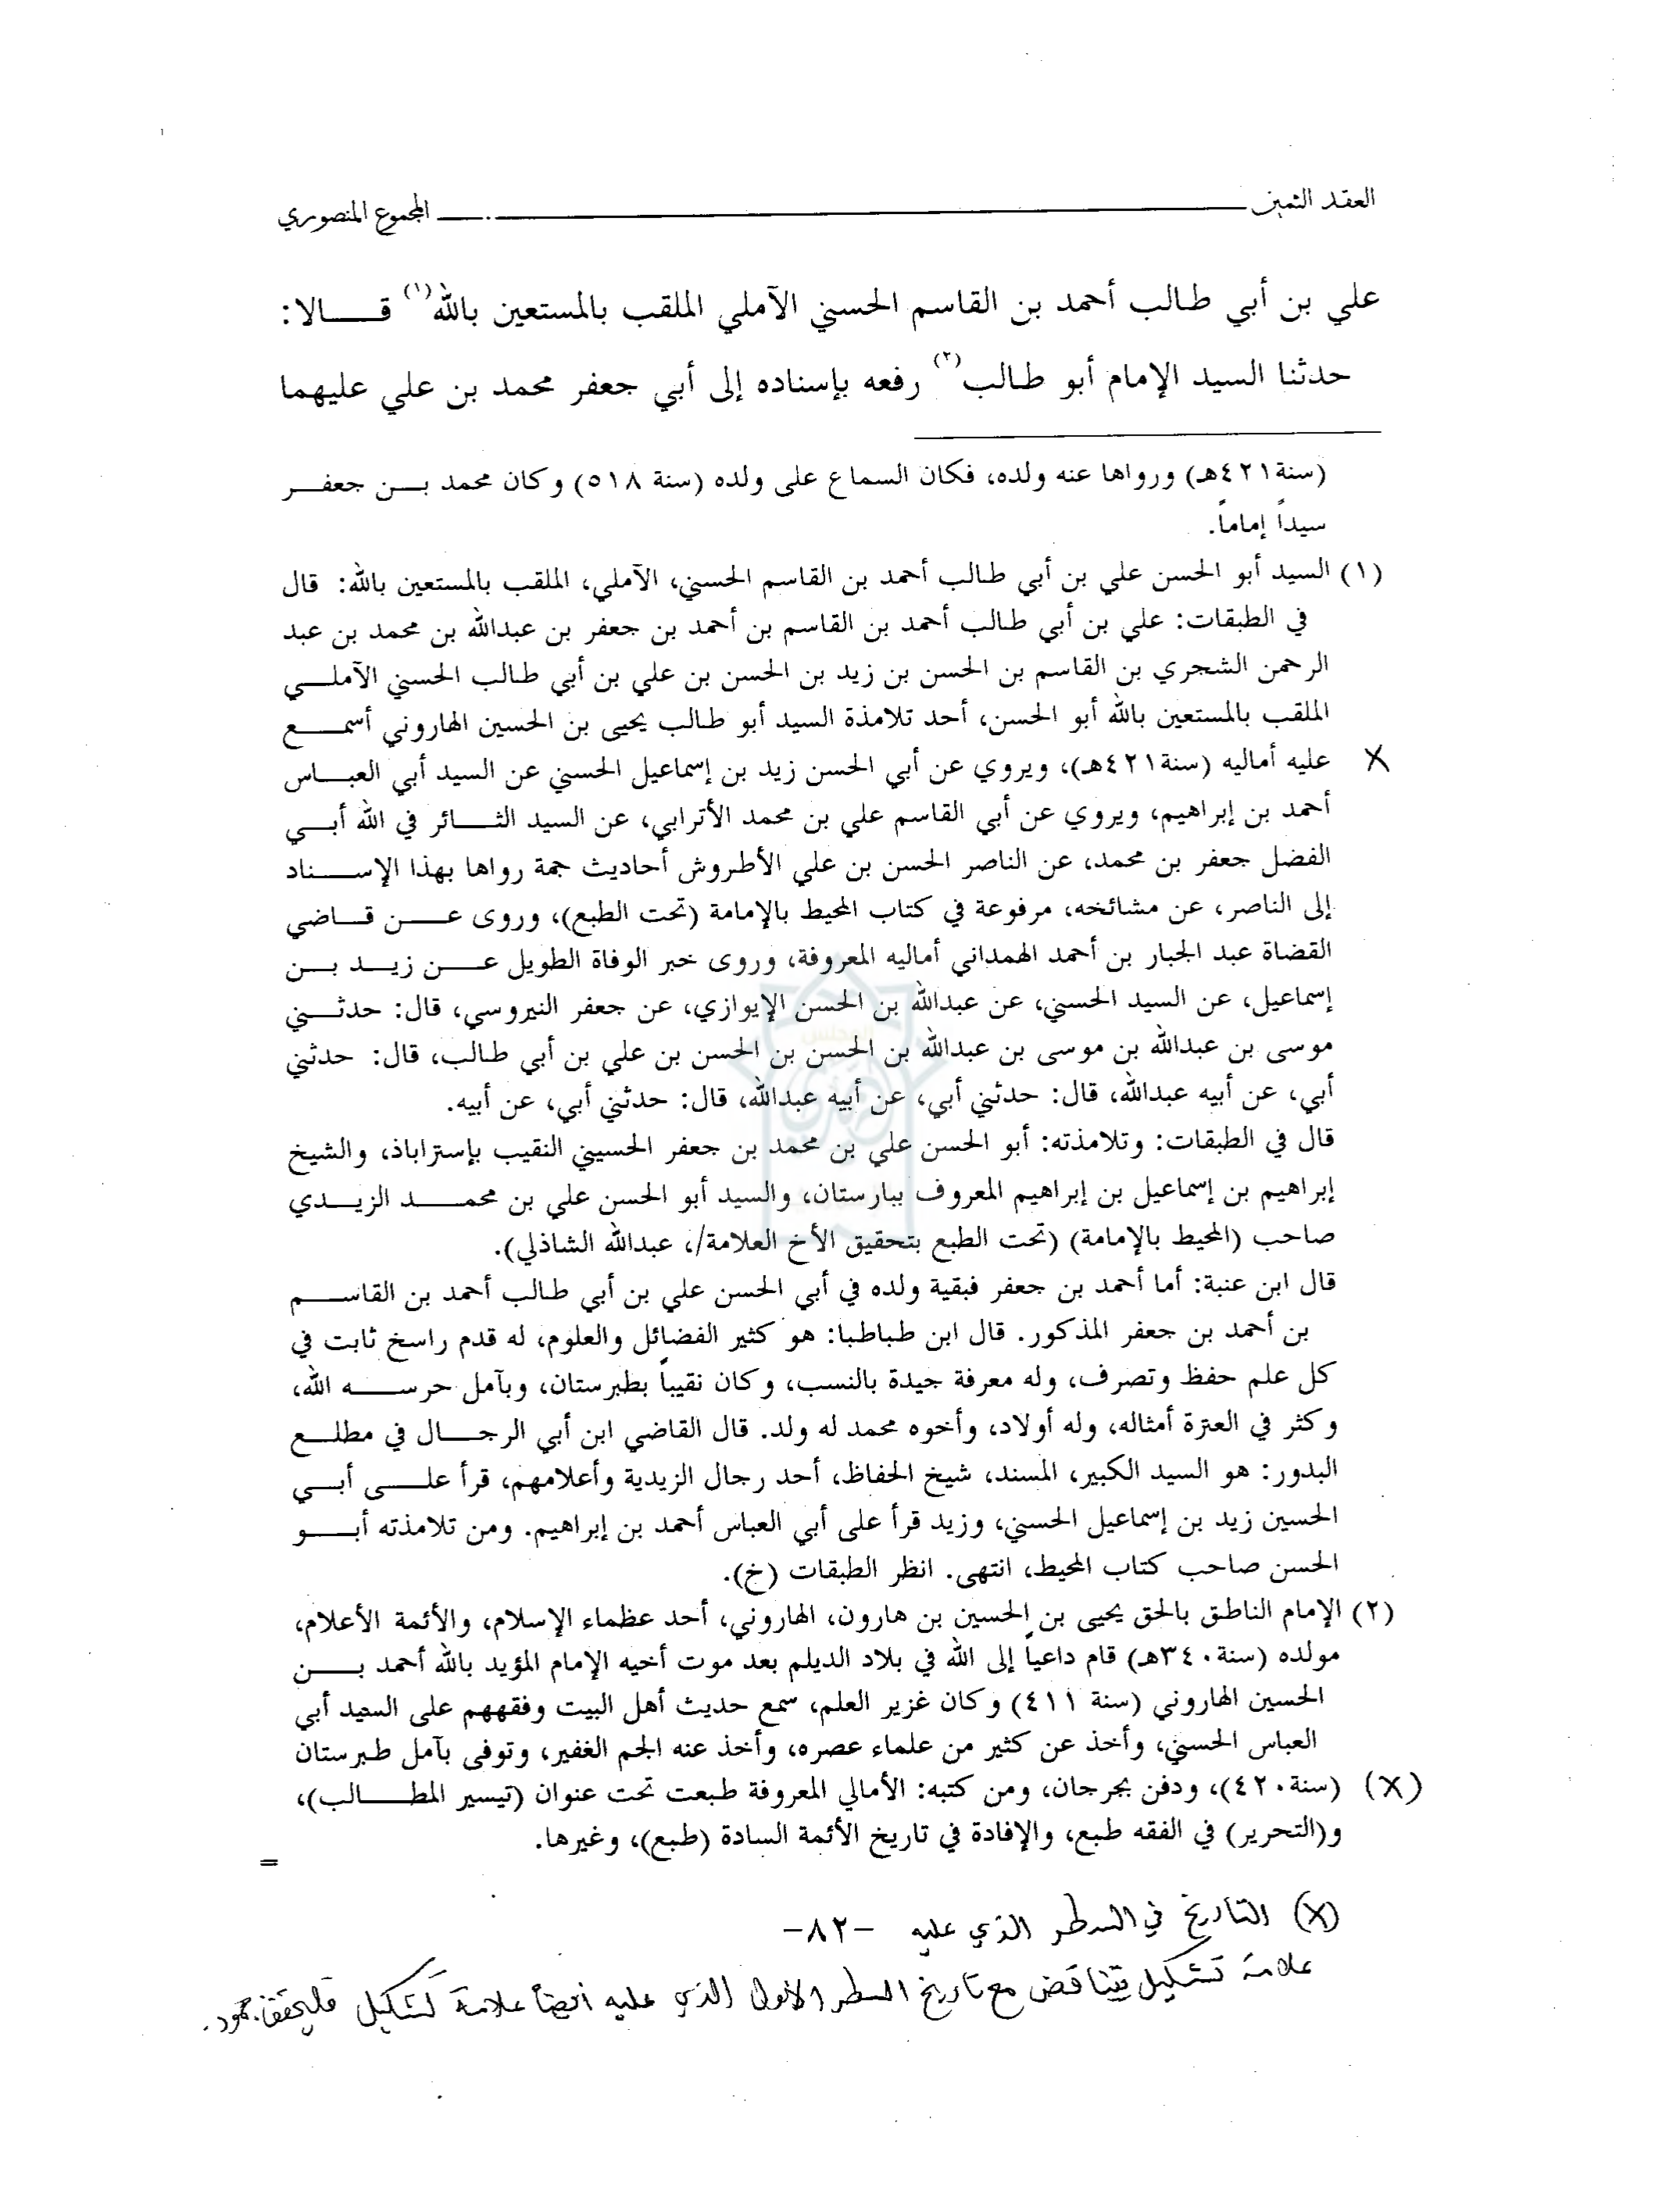 العقد الثمين ـــــــ المجموع المنصوري
علي بن أبي طالب أحمد بن القاسم الحسني الآملي الملقب بالمستعين بالله(١) قـــالا:
حدثنا السيد الإمام أبو طالب(٢) رفعه بإسناده إلى أبي جعفر محمد بن علي عليهما
(سنة٤٢١هـ) ورواها عنه ولده، فكان السماع على ولده (سنة ٥١٨) وكان محمد بـــن جعفـــر
سيداً إماماً.
(١) السيد أبو الحسن علي بن أبي طالب أحمد بن القاسم الحسني، الآملي، الملقب بالمستعين بالله: قال
في الطبقات: علي بن أبي طالب أحمد بن القاسم بن أحمد بن جعفر بن عبدالله بن محمد بن عبد
الرحمن الشجري بن القاسم بن الحسن بن زيد بن الحسن بن علي بن أبي طالب الحسني الآملـــي
الملقب بالمستعين بالله أبو الحسن، أحد تلامذة السيد أبو طالب يحيى بن الحسين الهاروني أسمـــع
X عليه أماليه (سنة٤٢١هـ)، ويروي عن أبي الحسن زيد بن إسماعيل الحسني عن السيد أبي العبـــاس
أحمد بن إبراهيم، ويروي عن أبي القاسم علي بن محمد الأترابي، عن السيد الثـــائر في الله أبـــي
الفضل جعفر بن محمد، عن الناصر الحسن بن علي الأطروش أحاديث جمة رواها بهذا الإســـناد
إلى الناصر، عن مشائخه، مرفوعة في كتاب المحيط بالإمامة (تحت الطبع)، وروى عـــن قـــاضي
القضاة عبد الجبار بن أحمد الهمداني أماليه المعروفة، وروى خبر الوفاة الطويل عـــن زيـــد بـــن
إسماعيل، عن السيد الحسني، عن عبدالله بن الحسن الإيوازي، عن جعفر النيروسي، قال: حدثـــني
موسى بن عبدالله بن موسى بن عبدالله بن الحسن بن الحسن بن علي بن أبي طالب، قال: حدثني
أبي، عن أبيه عبدالله، قال: حدثني أبي، عن أبيه عبدالله، قال: حدثني أبي، عن أبيه.
قال في الطبقات: وتلامذته: أبو الحسن علي بن محمد بن جعفر الحسيني النقيب بإستراباذ، والشيخ
إبراهيم بن إسماعيل بن إبراهيم المعروف ببارستان، والسيد أبو الحسن علي بن محمـــد الزيـــدي
صاحب (المحيط بالإمامة) (تحت الطبع بتحقيق الأخ العلامة/، عبدالله الشاذلي).
قال ابن عنبة: أما أحمد بن جعفر فبقية ولده في أبي الحسن علي بن أبي طالب أحمد بن القاســـم
بن أحمد بن جعفر المذكور. قال ابن طباطبا: هو كثير الفضائل والعلوم، له قدم راسخ ثابت في
كل علم حفظ وتصرف، وله معرفة جيدة بالنسب، وكان نقيباً بطبرستان، وبآمل حرســـه الله،
وكثر في العترة أمثاله، وله أولاد، وأخوه محمد له ولد. قال القاضي ابن أبي الرجـــال في مطلـــع
البدور: هو السيد الكبير، المسند، شيخ الحفاظ، أحد رجال الزيدية وأعلامهم، قرأ علـــى أبـــي
الحسين زيد بن إسماعيل الحسني، وزيد قرأ على أبي العباس أحمد بن إبراهيم. ومن تلامذته أبـــو
الحسن صاحب كتاب المحيط، انتهى. انظر الطبقات (خ).
(٢) الإمام الناطق بالحق يحيى بن الحسين بن هارون، الهاروني، أحد عظماء الإسلام، والأئمة الأعلام،
مولده (سنة٣٤٠هـ) قام داعياً إلى الله في بلاد الديلم بعد موت أخيه الإمام المؤيد بالله أحمد بـــن
الحسين الهاروني (سنة ٤١١) وكان غزير العلم، سمع حديث أهل البيت وفقههم على السيد أبي
العباس الحسني، وأخذ عن كثير من علماء عصره، وأخذ عنه الجم الغفير، وتوفى بآمل طبرستان
(X) (سنة٤٢٠)، ودفن بجرجان، ومن كتبه: الأمالي المعروفة طبعت تحت عنوان (تيسير المطـــالب)،
و(التحرير) في الفقه طبع، والإفادة في تاريخ الأئمة السادة (طبع)، وغيرها.
=
(X) التاريخ في السطر الذي عليه -٨٢-
علامة تشكيل يتناقض مع تاريخ السطر الأول الذي عليه أيضاً علامة تشكيل فليحقق.